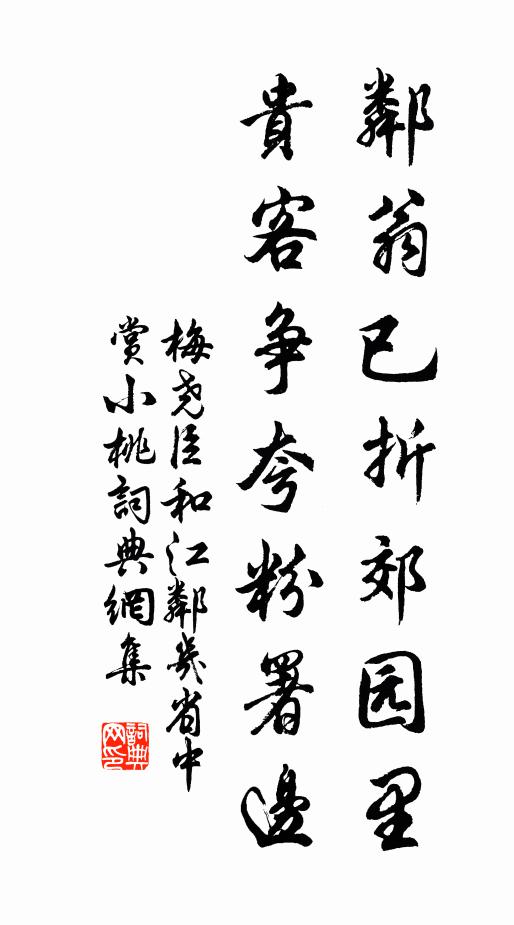 鄰翁已折郊园里
貴客争夸粉署邊
梅尧臣和江鄰幾省中
賞小桃詞典網集
詞典
网印